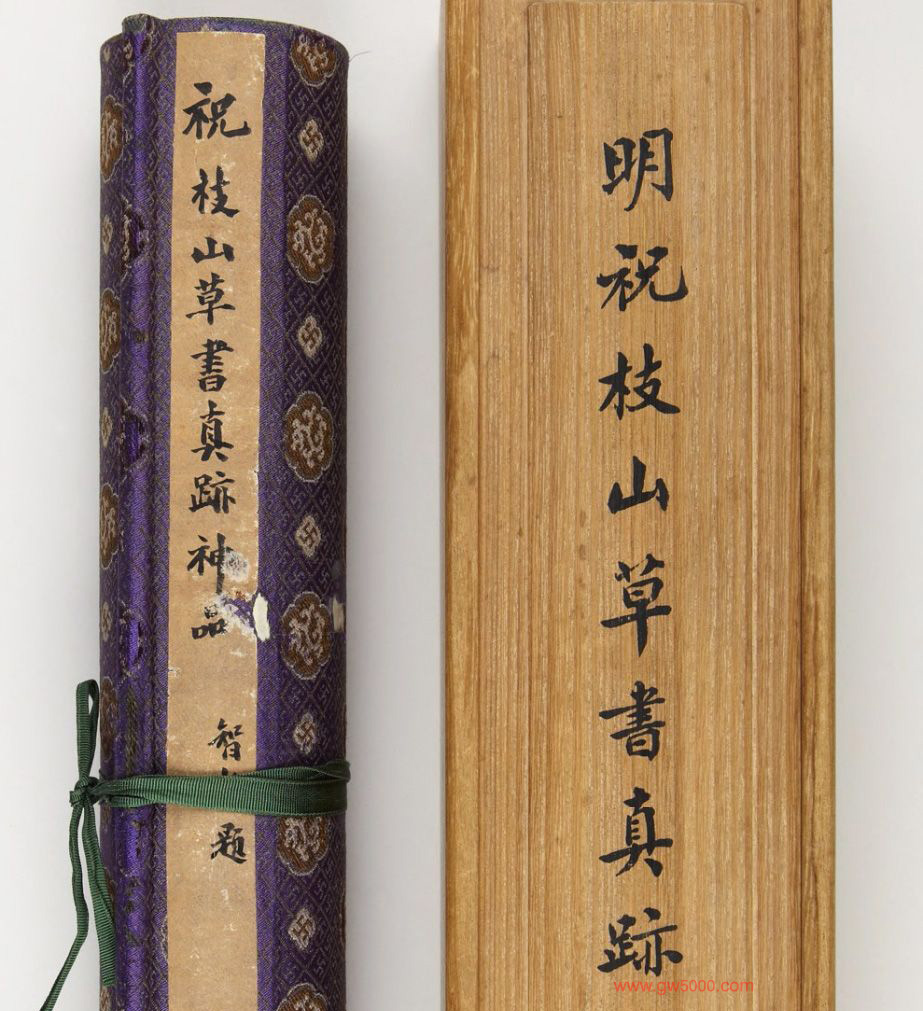 祝枝山草書真跡神品
智
題
明祝枝山草書真跡
www.gw5000.com